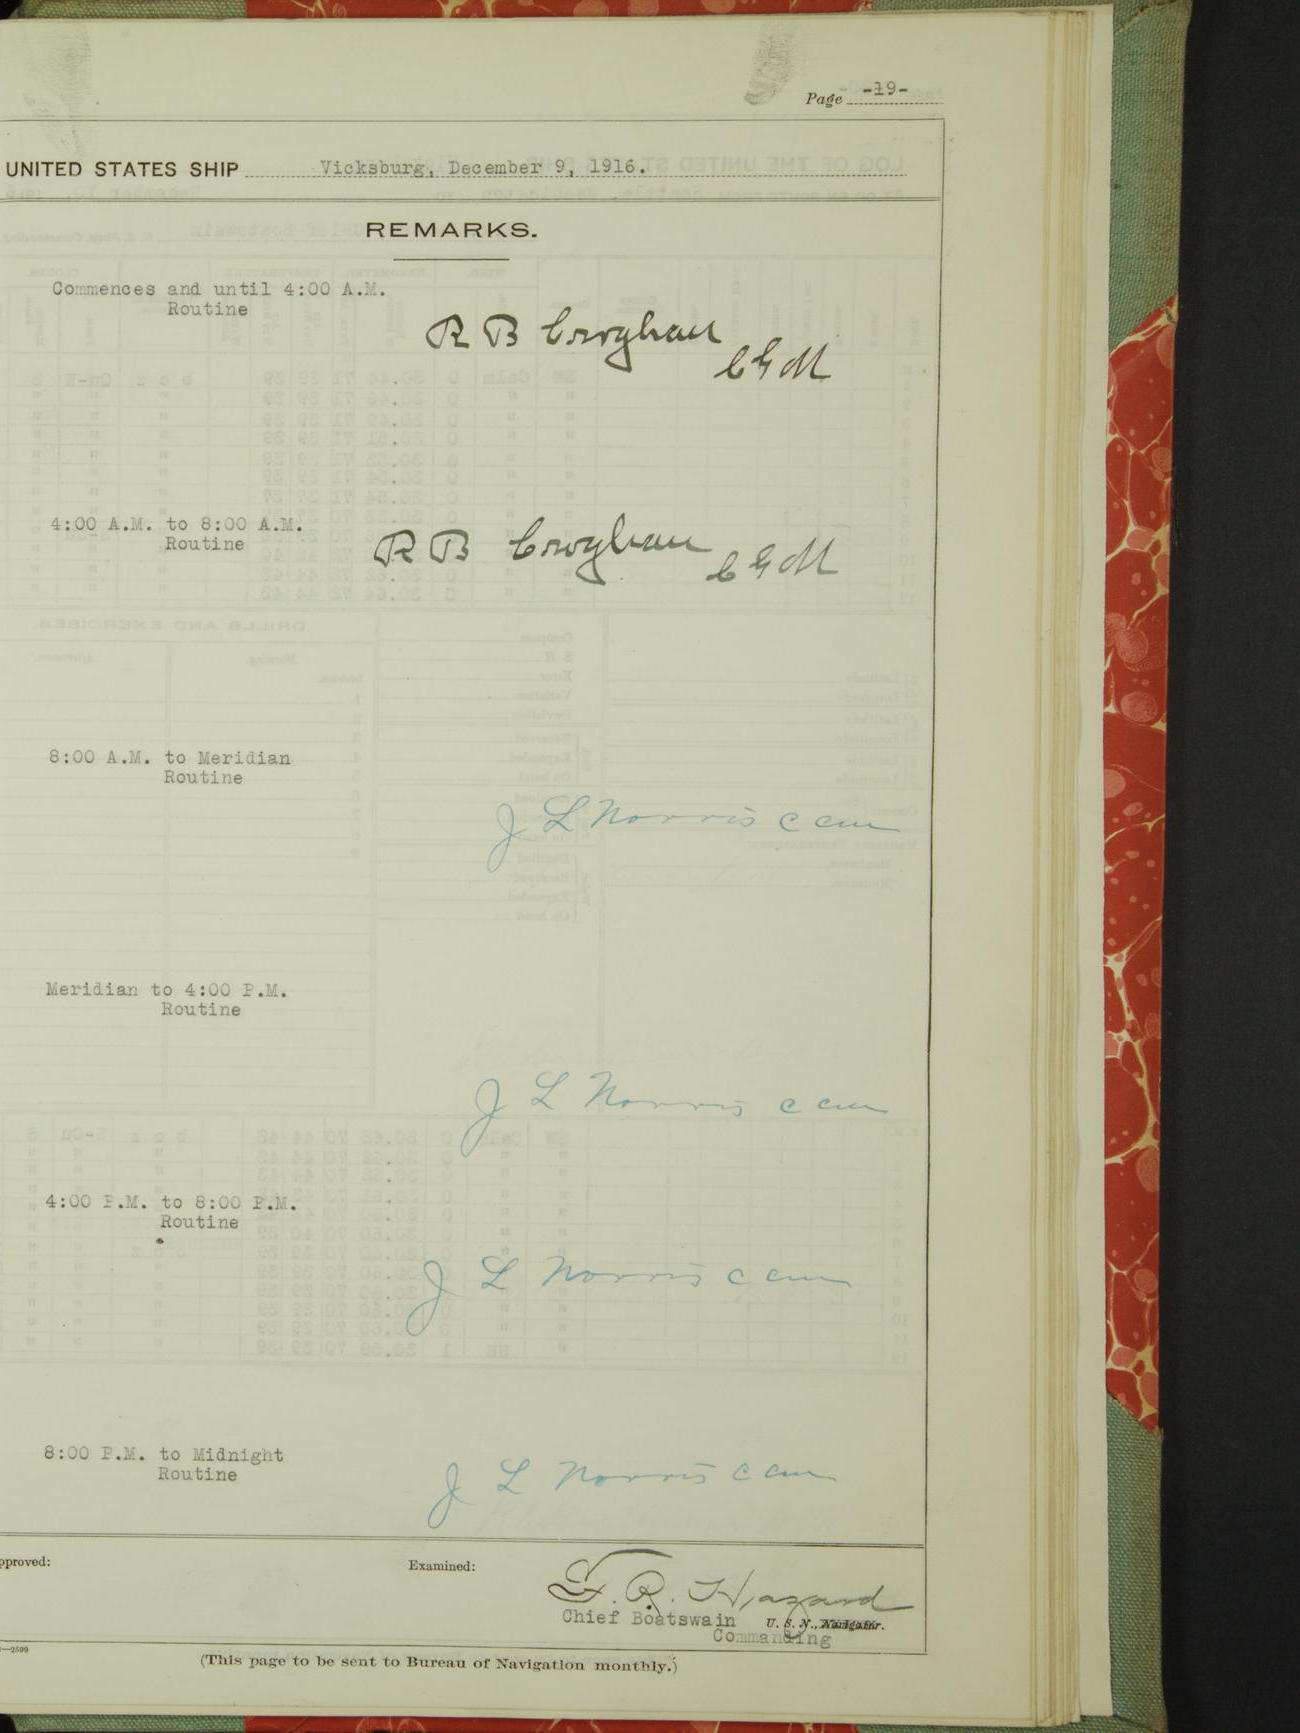 Page -19-
UNITED STATES SHIP Vicksburg, December 9, 1916.
REMARKS.
Commences and until 4:00 A.M.
Routine
R B Croghan
CGM
4:00 A.M. to 8:00 A.M.
Routine
R B Croghan
CGM
8:00 A.M. to Meridian
Routine
J L Norris CCM
Meridian to 4:00 P.M.
Routine
J L Norris CCM
4:00 P.M. to 8:00 P.M.
Routine
J L Norris CCM
8:00 P.M. to Midnight
Routine
J L Norris CCM
pproved:
Examined:
F. R. Hazard
Chief Boatswain U. S. N., Navigator.
Commanding
—2599
(This page to be sent to Bureau of Navigation monthly.)